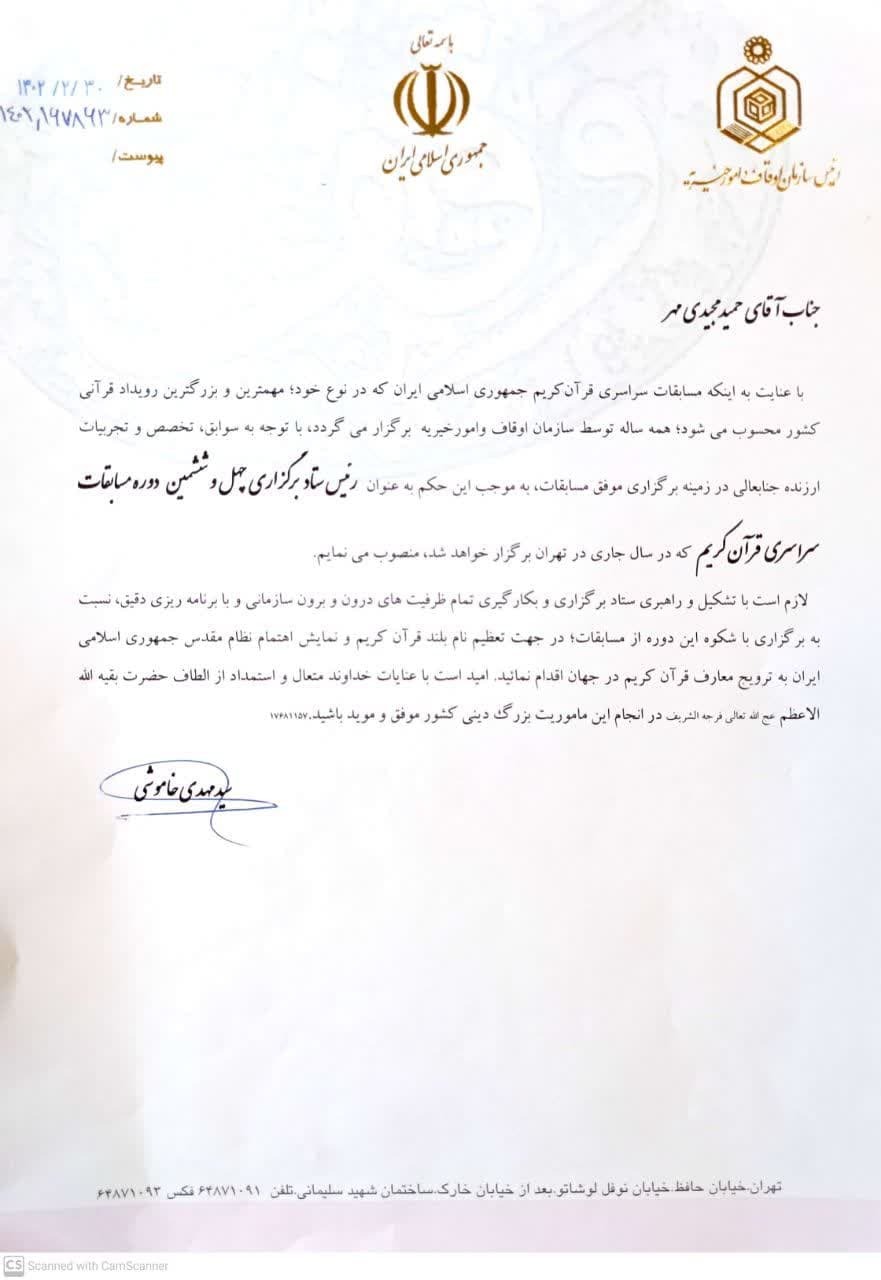 باسمه تعالی
جمهوری اسلامی ایران
رئیس سازمان اوقاف و امور خیریه
تاریخ/ ۱۴۰۲/۲/۳۰
شماره/ ۱۴۰۲,۱۶۷۸۶۳
پیوست/
جناب آقای حمید مجیدی مهر
با عنایت به اینکه مسابقات سراسری قرآن‌کریم جمهوری اسلامی ایران که در نوع خود؛ مهمترین و بزرگترین رویداد قرآنی
کشور محسوب می شود؛ همه ساله توسط سازمان اوقاف وامورخیریه برگزار می گردد، با توجه به سوابق، تخصص و تجربیات
ارزنده جنابعالی در زمینه برگزاری موفق مسابقات، به موجب این حکم به عنوان رئیس ستاد برگزاری چهل و ششمین دوره مسابقات
سراسری قرآن کریم که در سال جاری در تهران برگزار خواهد شد، منصوب می نمایم.
لازم است با تشکیل و راهبری ستاد برگزاری و بکارگیری تمام ظرفیت های درون و برون سازمانی و با برنامه ریزی دقیق، نسبت
به برگزاری با شکوه این دوره از مسابقات؛ در جهت تعظیم نام بلند قرآن کریم و نمایش اهتمام نظام مقدس جمهوری اسلامی
ایران به ترویج معارف قرآن کریم در جهان اقدام نمائید. امید است با عنایات خداوند متعال و استمداد از الطاف حضرت بقیه الله
الاعظم عج الله تعالی فرجه الشریف در انجام این ماموریت بزرگ دینی کشور موفق و موید باشید.۱۷۶۸۱۱۵۷
سید مهدی خاموشی
تهران.خیابان حافظ.خیابان نوفل لوشاتو.بعد از خیابان خارک.ساختمان شهید سلیمانی.تلفن ۶۴۸۷۱۰۹۱ فکس ۶۴۸۷۱۰۹۳
CS Scanned with CamScanner